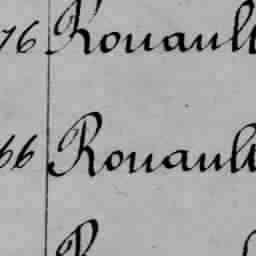 76 Rouault
66 Rouault